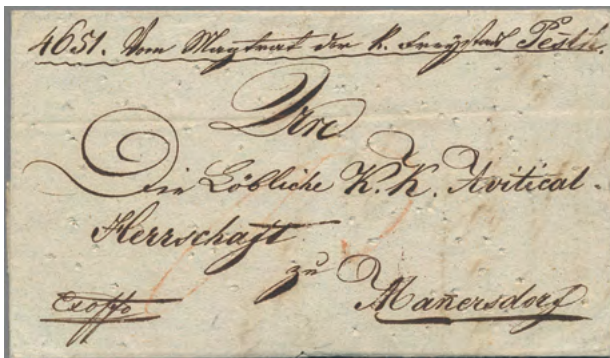 4651. Vom Magtrat der k. Freystad Pesth.
An
Die Löbliche K. K. Avitical-
Herrschaft
zu
Manersdorf
Exoffo